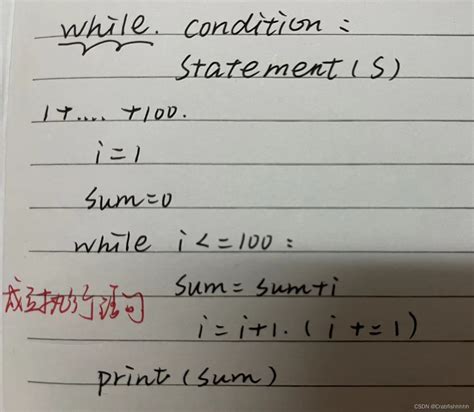 while. condition:
Statement(S)
1+....+100.
i=1
sum=0
while i<=100:
sum=sum+i
成立执行语句
i=i+1.(i+=1)
print(sum)
CSDN @Crabfishhhhh